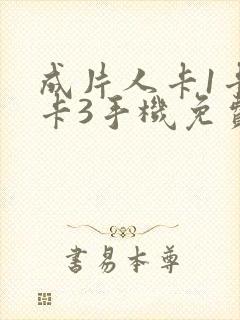 成片人卡1卡
卡3手機免費
書易本尊